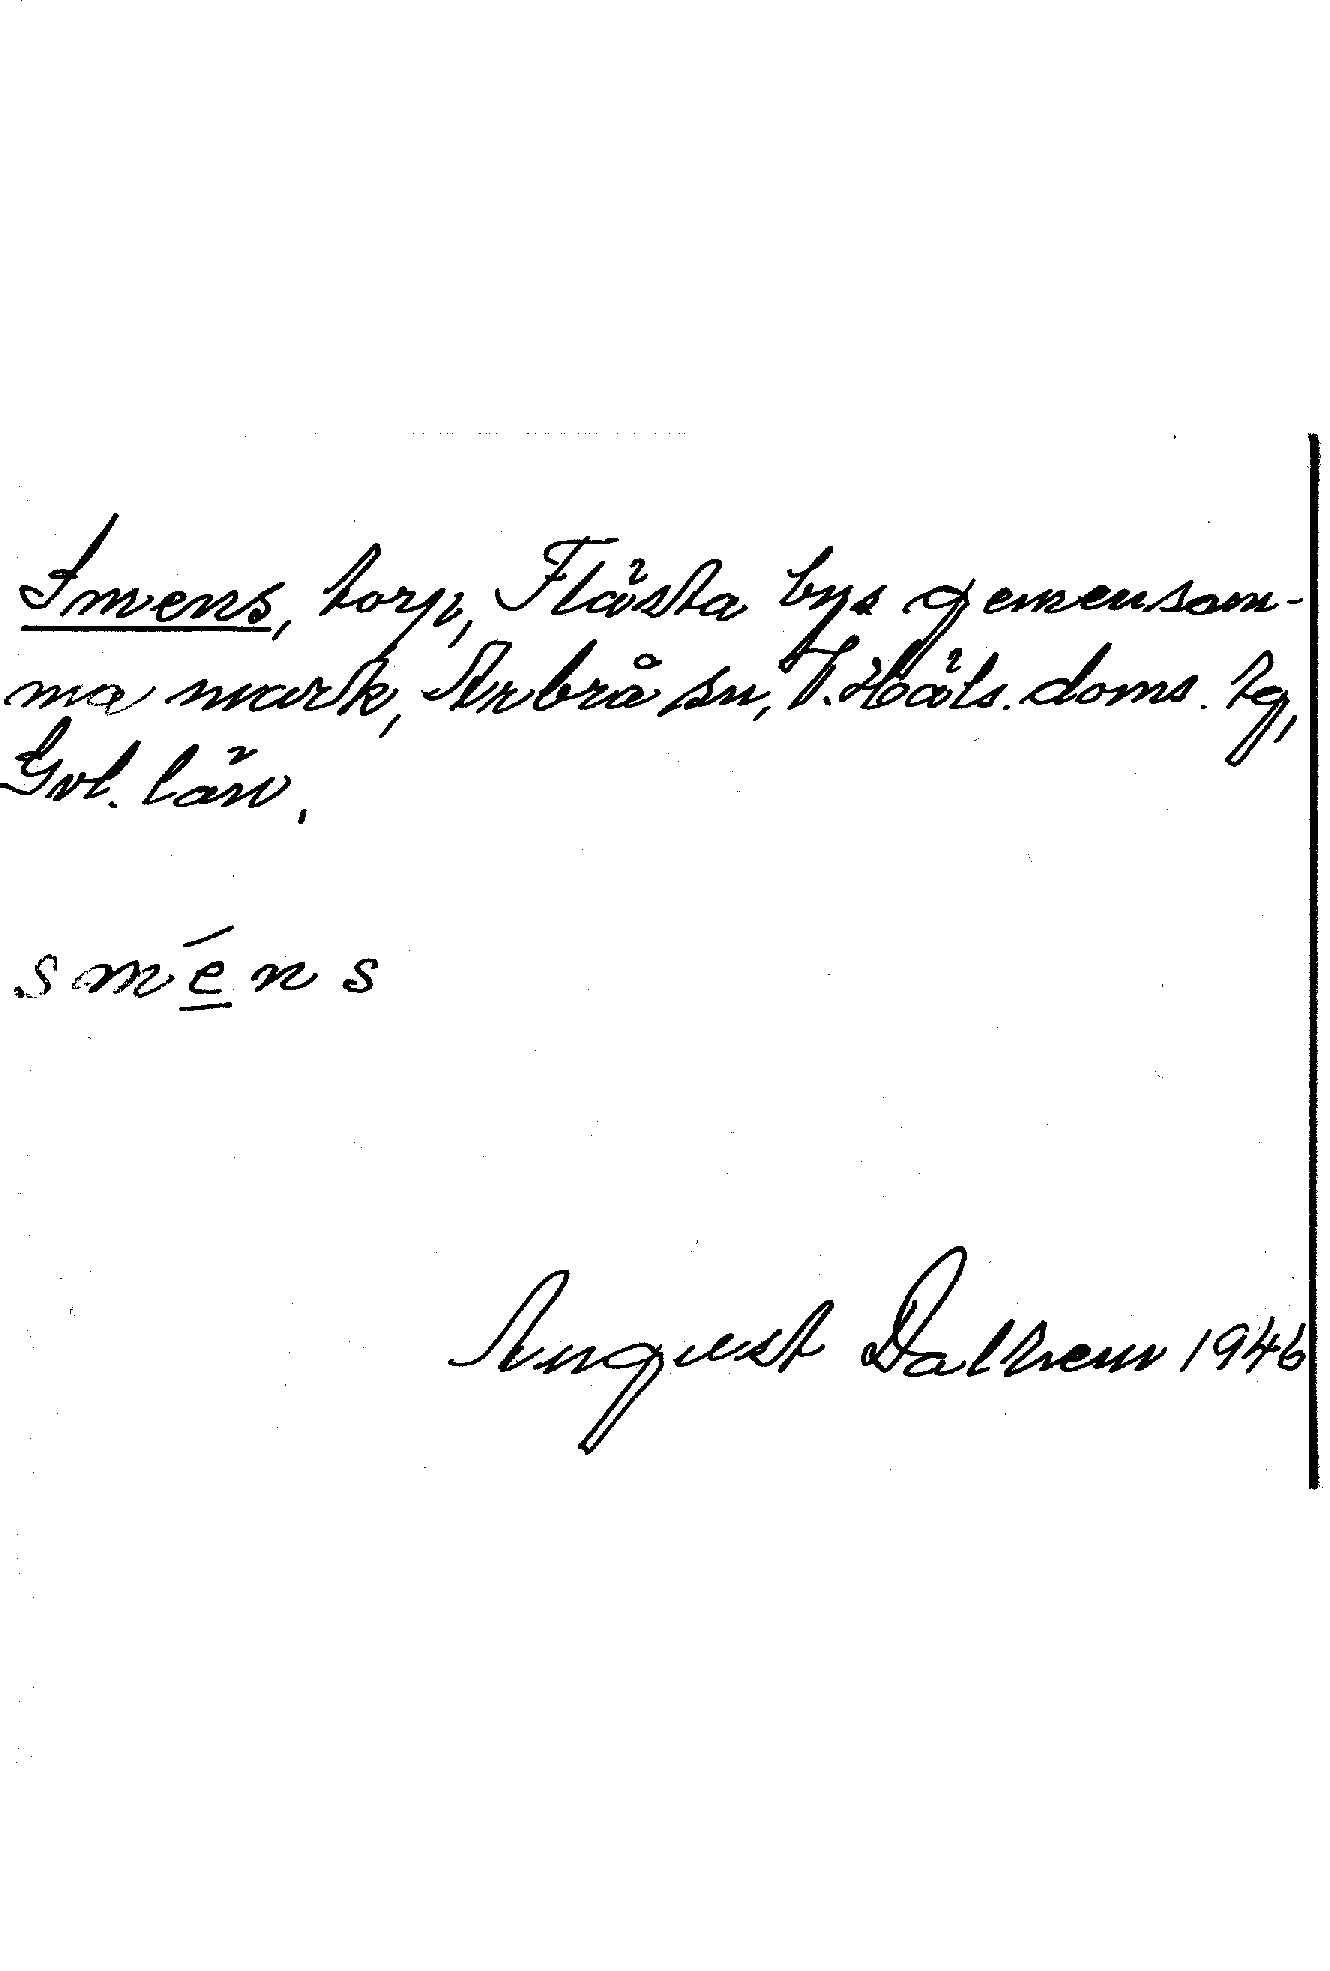 Smens, torp, Flästa bys gemensam-
ma mark, Arbrå sn, V. Häls. doms. tg,
Gvl. län.
sméns
August Dalhem 1946